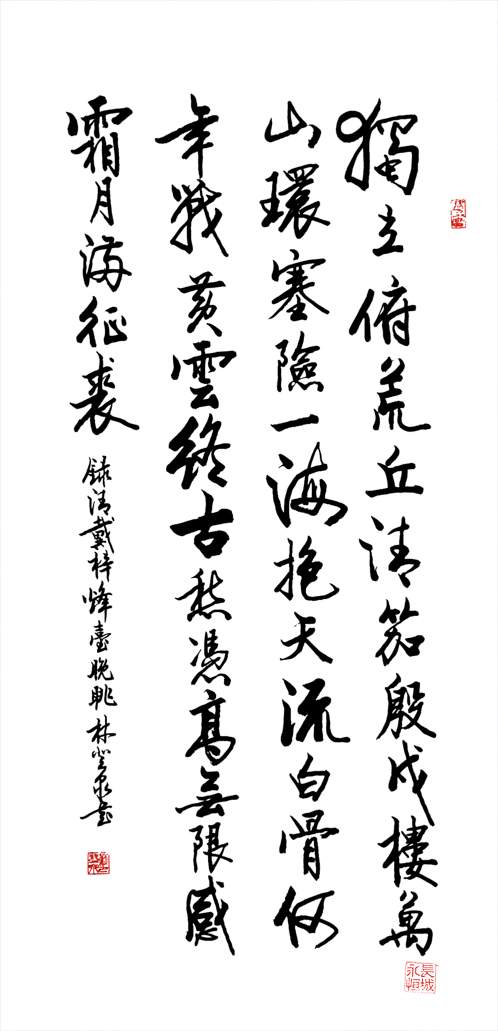 獨立俯荒丘清笳殷戍樓萬
山環塞險一海抱天流白骨何
年戰黄雲終古愁憑高無限感
霜月滿征裘
録清戴梓烽臺晚眺 林登泉書
長城
永恒